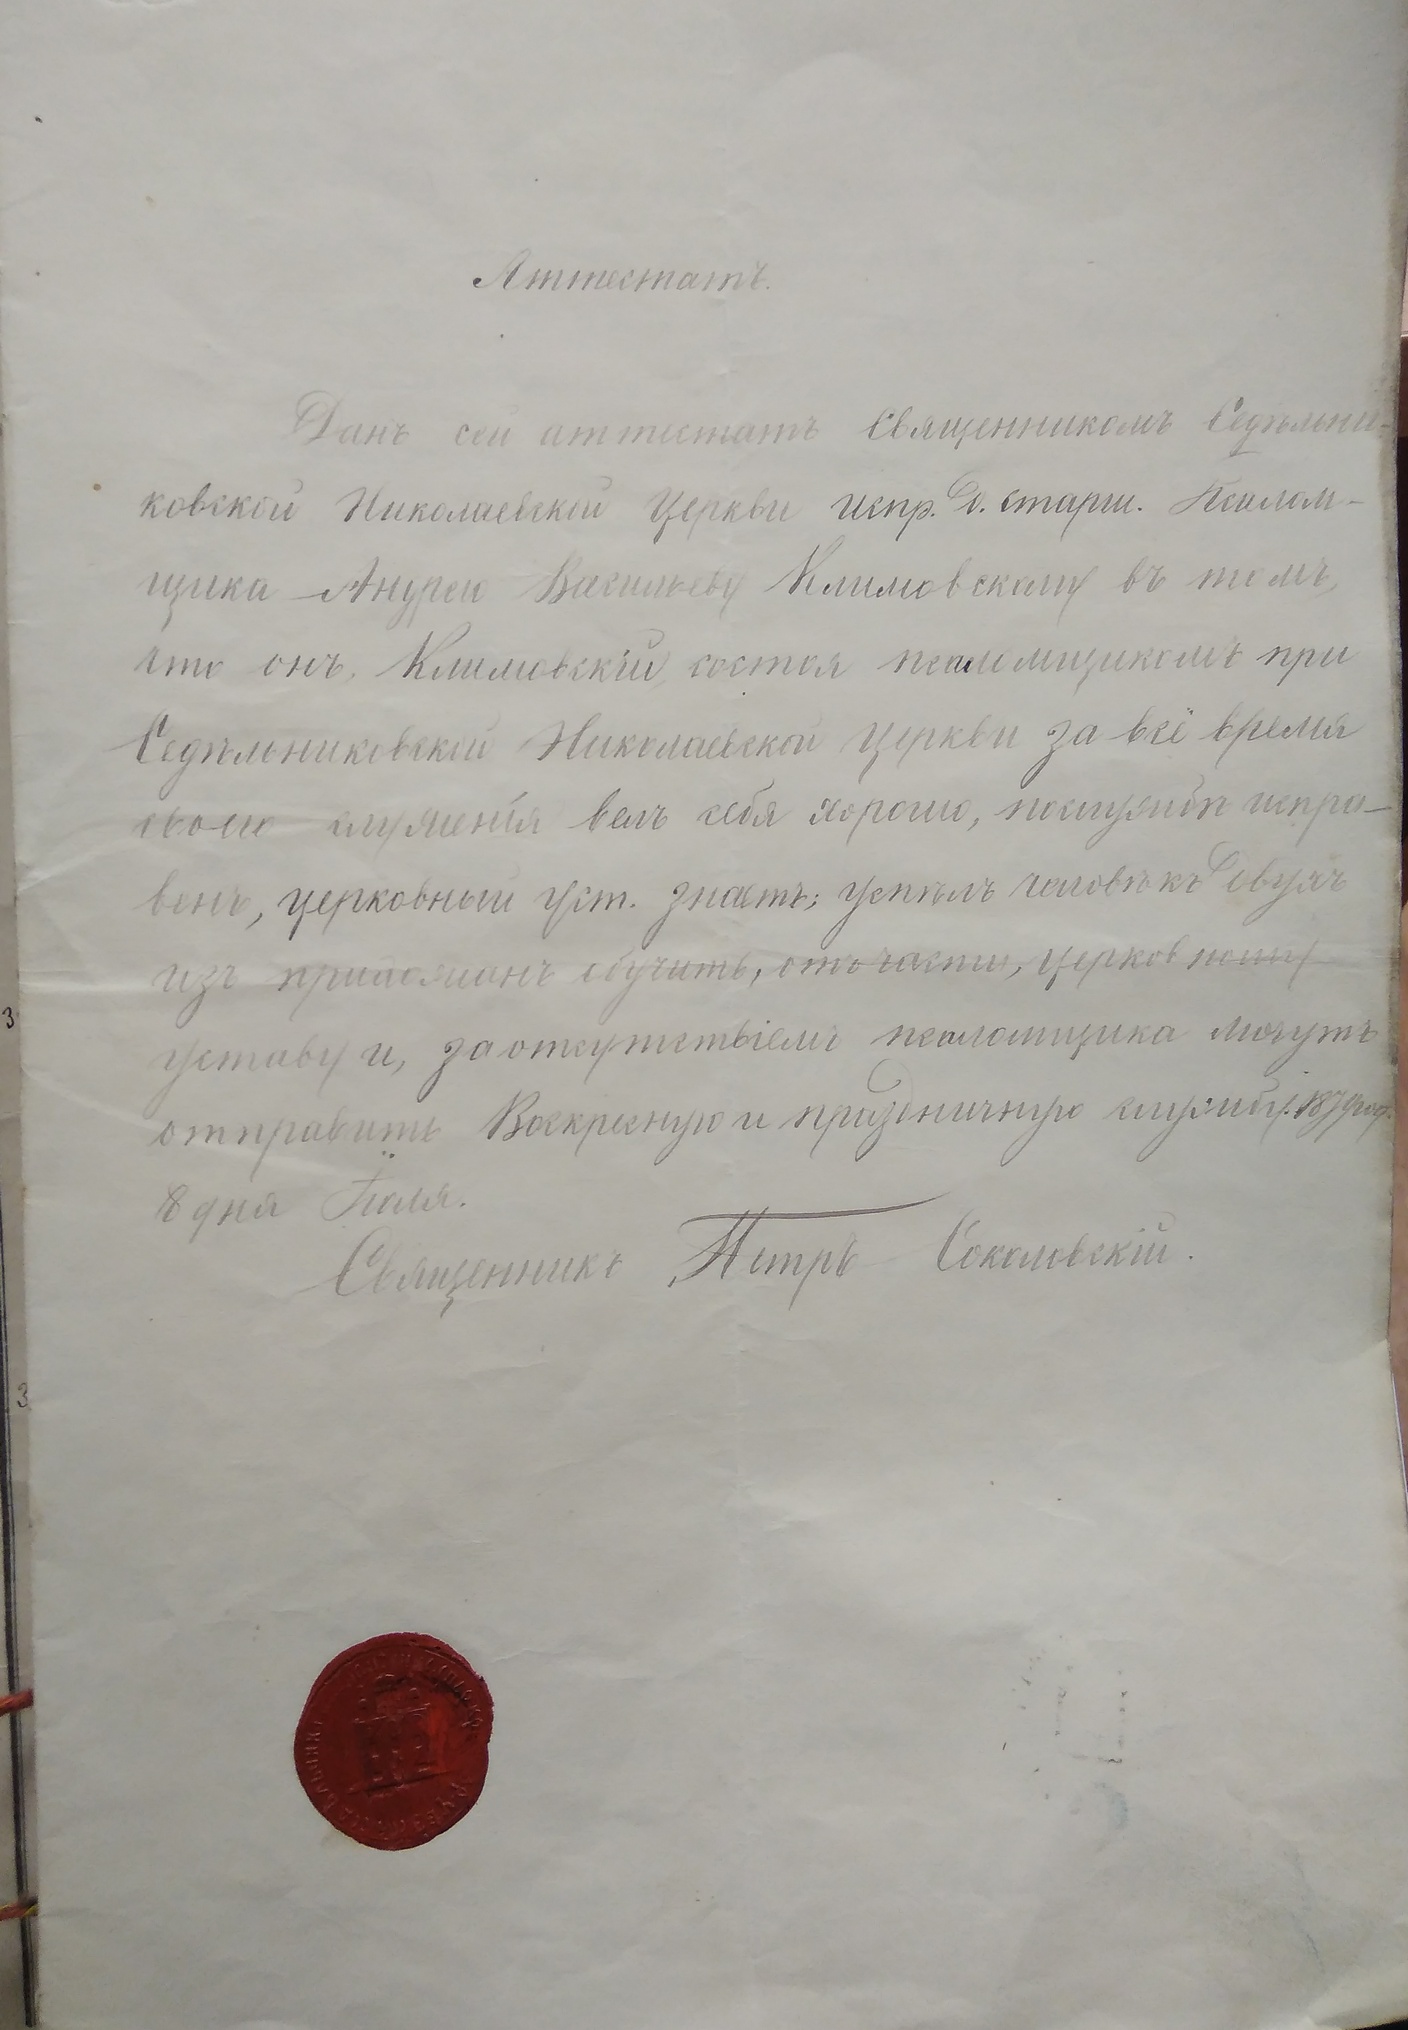 Аттестатъ.
Данъ сей аттестатъ Священникомъ Седѣльни-
ковской Николаевской Церкви испр. д. старш. Псалом-
щика Андрею Васильеву Климовскому въ томъ,
что онъ, Климовскій, состоя псаломщикомъ при
Седѣльниковской Николаевской Церкви за всё время
своего служенія велъ себя хорошо, по службѣ испра-
венъ, церковный уст. знаетъ; успѣлъ человѣкъ двухъ
изъ прихожанъ обучить, отъ части, церковному
уставу и, за отсутствіемъ псаломщика могутъ
отправить Воскресную и праздничную службу. 1879 год.
8 дня Іюля.
Священникъ Петръ Соколовскій.
3
3